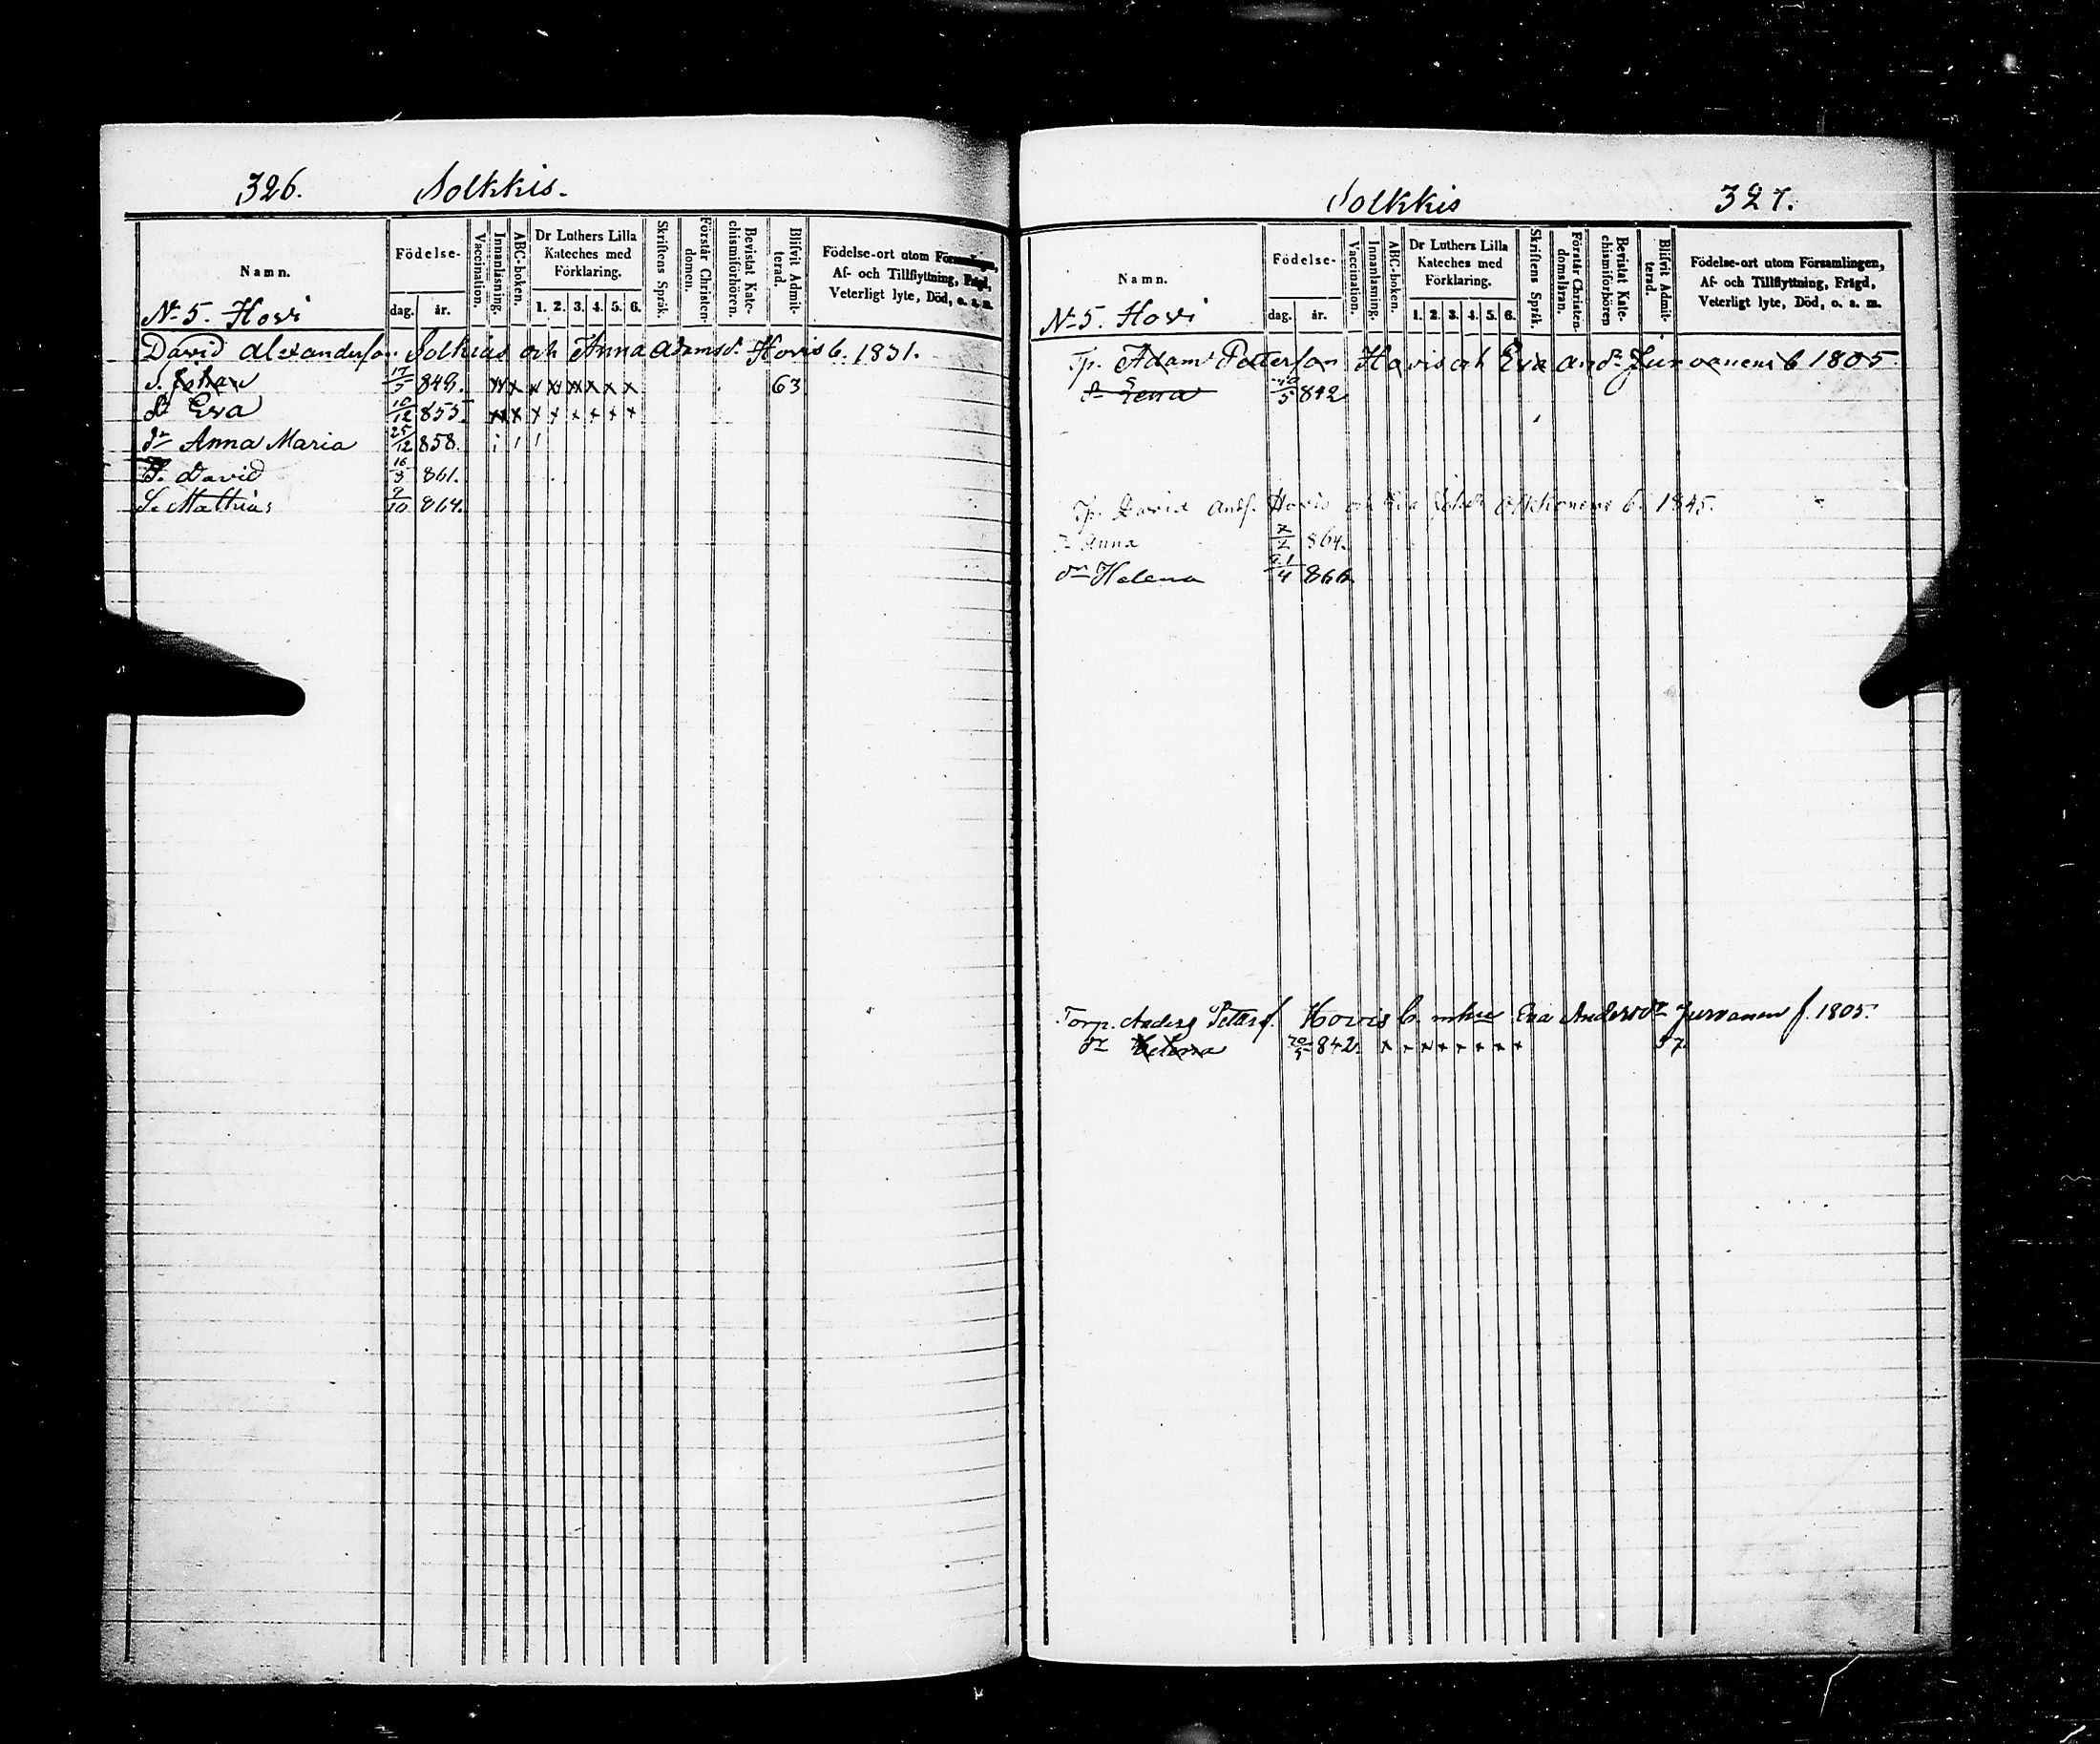 326. Solkkis.
Namn.
Födelse-
dag. år.
Vaccination.
Innanläsning.
ABC-boken.
Dr Luthers Lilla
Kateches med
Förklaring.
1. 2. 3. 4. 5. 6.
Skriftens Språk.
Förstår Christen-
domen.
Bevistat Kate-
chismiförhören.
Blifvit Admit-
terad.
Födelse-ort utom Församlingen,
Af- och Tillflyttning, Frägd,
Veterligt lyte, Död, o. s. m.
N 5. Hovi
David Alexandersson Solkias och Anna Adamsd. Hovis b. 1831.
S. Johan 17/5 849. x x x x x x x x 63
dr Eva 10/12 855. x x x x x x x x
dr Anna Maria 25/12 858.
S. David 16/3 861.
S. Mathias 9/10 864.
Solkkis 327.
Namn.
Födelse-
dag. år.
Vaccination.
Innanläsning.
ABC-boken.
Dr Luthers Lilla
Kateches med
Förklaring.
1. 2. 3. 4. 5. 6.
Skriftens Språk.
Förstår Christen-
domsläran.
Bevistat Kate-
chismiförhören
Blifvit Admit-
terad.
Födelse-ort utom Församlingen,
Af- och Tillflyttning, Frägd,
Veterligt lyte, Död, o. s. m.
N 5. Hovi
Tp. Adam Petterson Hovis och Eva And. Jurvanens b 1805.
842
Tp. David Ands. Hovis och Eva b. 1845.
Anna 864.
dr Helena 4 866
Torp. Anders Peters. Hovis b. m hu Eva Andersdr Jurvanen f. 1805.
dr Helena 842. x x x x x x x x 57.